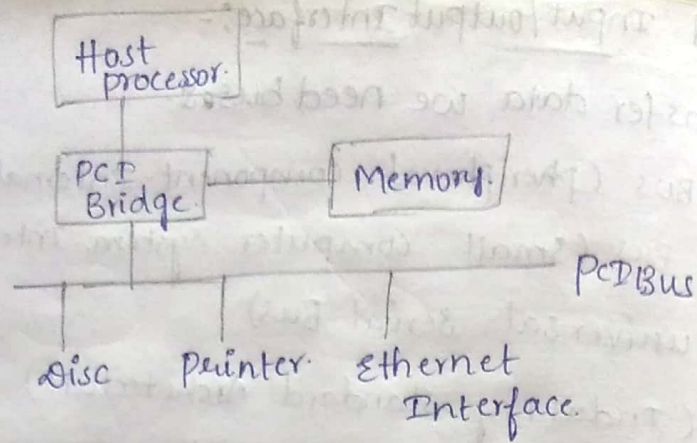 Host
processor.
PCI
Bridge.
Memory.
PCI Bus
Disc
Printer.
Ethernet
Interface.